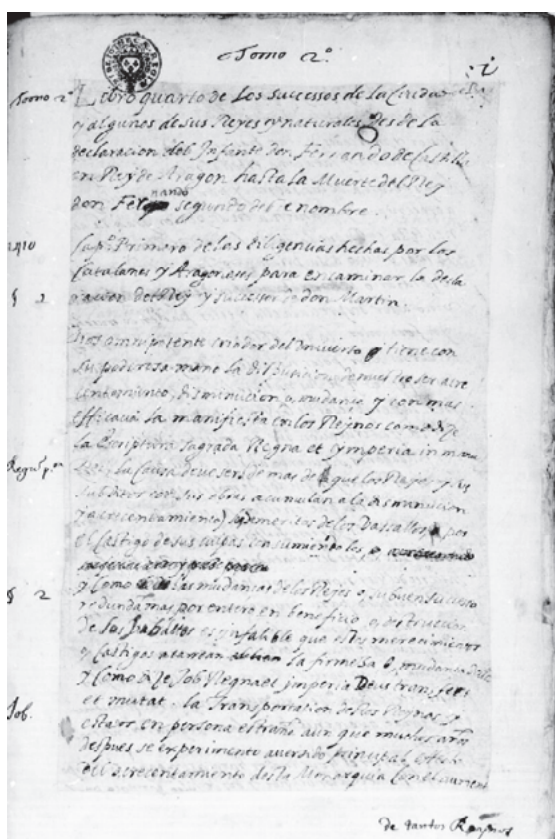 Tomo 2º.
Tomo 2º Libro quarto de los sucessos de la Ciudad
y algunos de sus Reyes y naturales desde la
declaracion del Infante don Fernando de Castilla
en Rey de Aragon hasta la Muerte del Rey
don Fernando segundo deste nombre.
1410 Capº. Primero de las diligencias hechas por los
Catalanes y Aragoneses para encaminar la decla
racion del Rey y sucessor de don Martin.
§ 1
Dios omnipotente criador del Universo q tiene con
su poderosa mano la de nuestro ser acre
centamiento, disminucion o mudança y con mas
efficacia la manifiesta en los Reynos como dize
la Escriptura Sagrada Regna et imperia in manu
la causa deve ser demas de que los Reyes y sus
subditos con sus obras acumulan a la disminucion
y acrecentamiento de los Vassallos por
el Castigo de sus culpas
§ 2 y Como las mudanças de los Reyes o su buen sucesso
redunda mas por entero en beneficio o destrucion
de los es infalible que estos merecimientos
y castigos la firmesa o mudança
Job. y Como dize Job Regna et imperia Deus transfert
et mutat. la Transportacion de los Reynos y
estados en persona aun que muchos años
despues se experimento efecto
el acrecentamiento desta Monarquia
de tantos Reynos